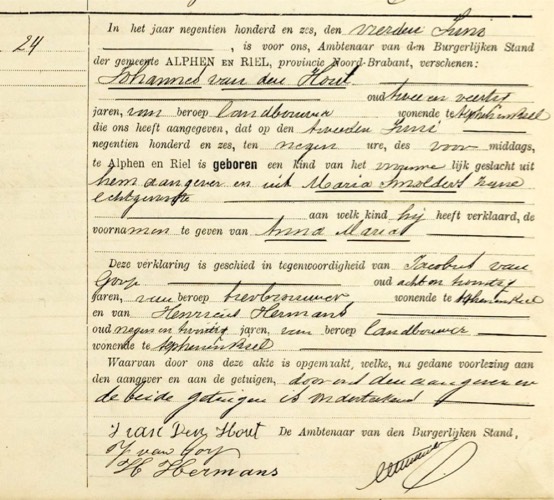 24
In het jaar negentien honderd en zes, den vierden Juni
, is voor ons, Ambtenaar van den Burgerlijken Stand
der gemeente ALPHEN EN RIEL, provincie Noord-Brabant, verschenen:
Johannes van den Hout
oud twee en veertig
jaren, van beroep landbouwer wonende te Alphen en Riel
die ons heeft aangegeven, dat op den tweeden Juni
negentien honderd en zes, ten negen ure, des voor middags,
te Alphen en Riel is geboren een kind van het vrouwe lijk geslacht uit
hem aangever en uit Maria Smolders zijne
echtgenoote
aan welk kind hij heeft verklaard, de
voornamen te geven van Anna Maria
Deze verklaring is geschied in tegenwoordigheid van Jacobus van
Gorp oud acht en twintig
jaren, van beroep bierbrouwer wonende te Alphen en Riel
en van Henricus Hermans
oud negen en twintig jaren, van beroep landbouwer
wonende te Alphen en Riel
Waarvan door ons deze akte is opgemaakt, welke, na gedane voorlezing aan
den aangever en aan de getuigen, door ons den aangever en
de beide getuigen is onderteekend
J van Den Hout De Ambtenaar van den Burgerlijken Stand,
J van Gorp
H Hermans